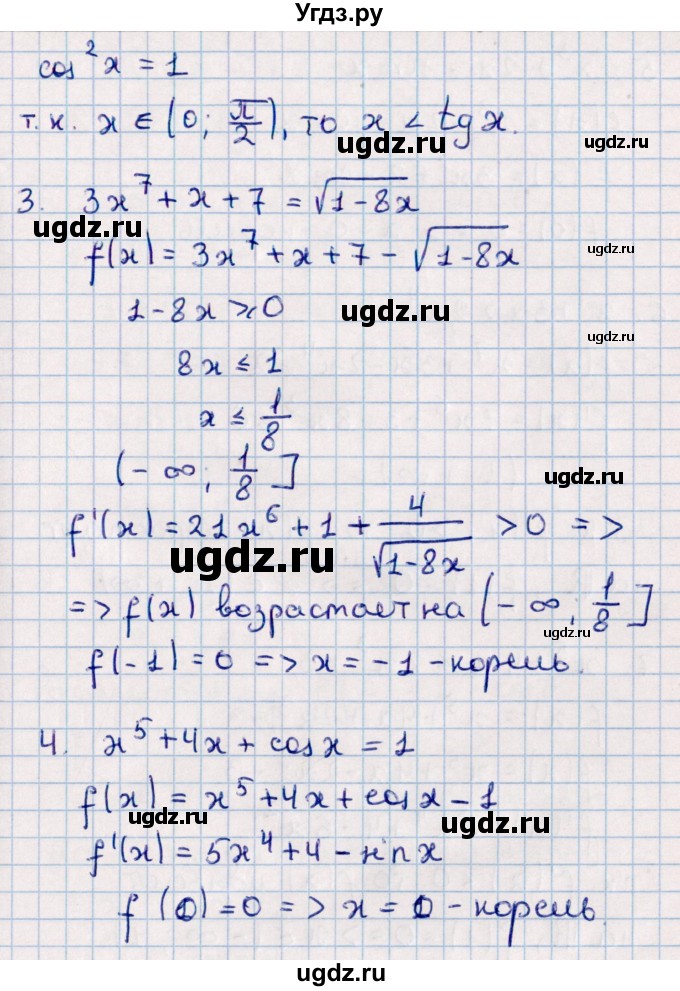 Угдз.ру
cos²x = 1
т.к. x ∈ (0; π/2), то x < tg x.
ugdz.ru
3. 3x⁷ + x + 7 = √(1-8x)
ugdz.ru
ugdz.ru
f(x) = 3x⁷ + x + 7 - √(1-8x)
ugdz.ru
1 - 8x ≥ 0
ugdz.ru
ugdz.ru
8x ≤ 1
x ≤ 1/8
(-∞; 1/8]
ugdz.ru
f'(x) = 21x⁶ + 1 + 4/√(1-8x) > 0 =>
ugdz.ru
=> f(x) возрастает на (-∞; 1/8]
ugdz.ru
f(-1) = 0 => x = -1 - корень.
4. x⁵ + 4x + cos x = 1
f(x) = x⁵ + 4x + cos x - 1
ugdz.ru
ugdz.ru
f'(x) = 5x⁴ + 4 - sin x
f(0) = 0 => x = 0 - корень.
ugdz.ru
ugdz.ru